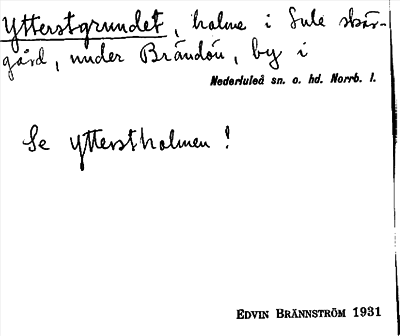 Ytterstgrundet, holme i Lule skär-
gård, under Brändön, by i
Nederluleå sn. o. hd. Norrb. l.
Se Ytterstholmen!
EDVIN BRÄNNSTRÖM 1931